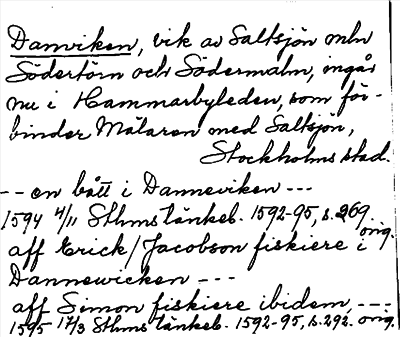 Danviken, vik av Saltsjön mln
Södertörn och Södermalm, ingår
nu i Hammarbyleden, som för-
binder Mälaren med Saltsjön,
Stockholms stad.
-- en bått i Danneviken ---
1594 4/11 Sthms tänkeb. 1592-95, s. 269. orig.
aff Erick / Jacobson fiskiere i
Dannewicken ---
aff Simon fiskiere ibidem, ---
1595 17/3 Sthms tänkeb. 1592-95, s. 292. orig.